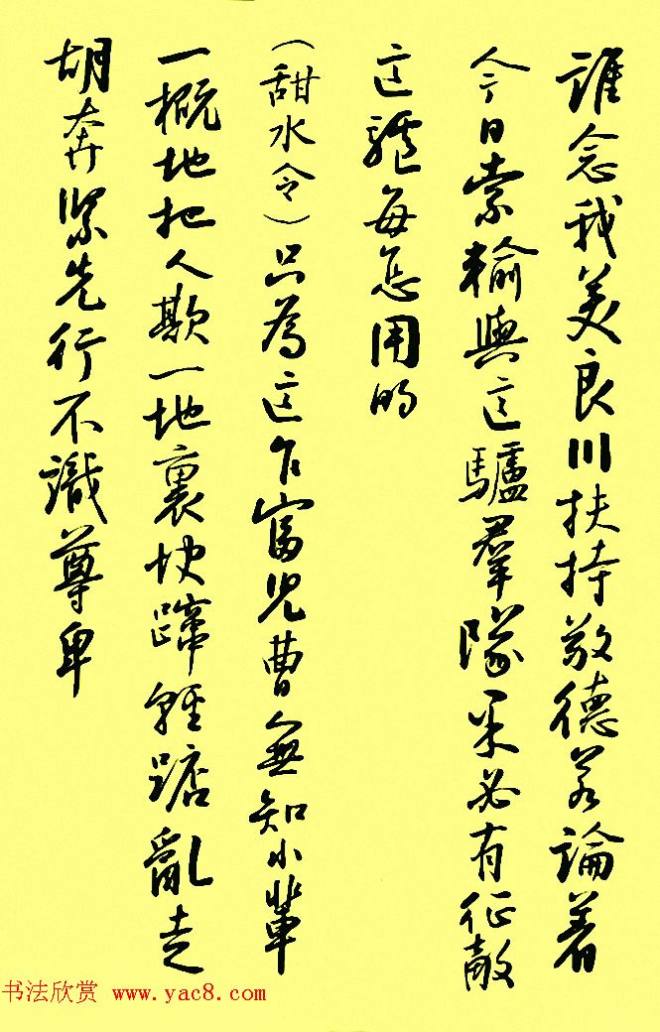 誰念我美良川扶持敬德若論着
今日索輸與这驢羣隊果必有征敵
这驢每怎用的
（甜水令）只為这乍富児曹無知小輩
一概地把人欺一地裏快蹿輕踮亂走
胡奔緊先行不識尊卑
书法欣赏 www.yac8.com